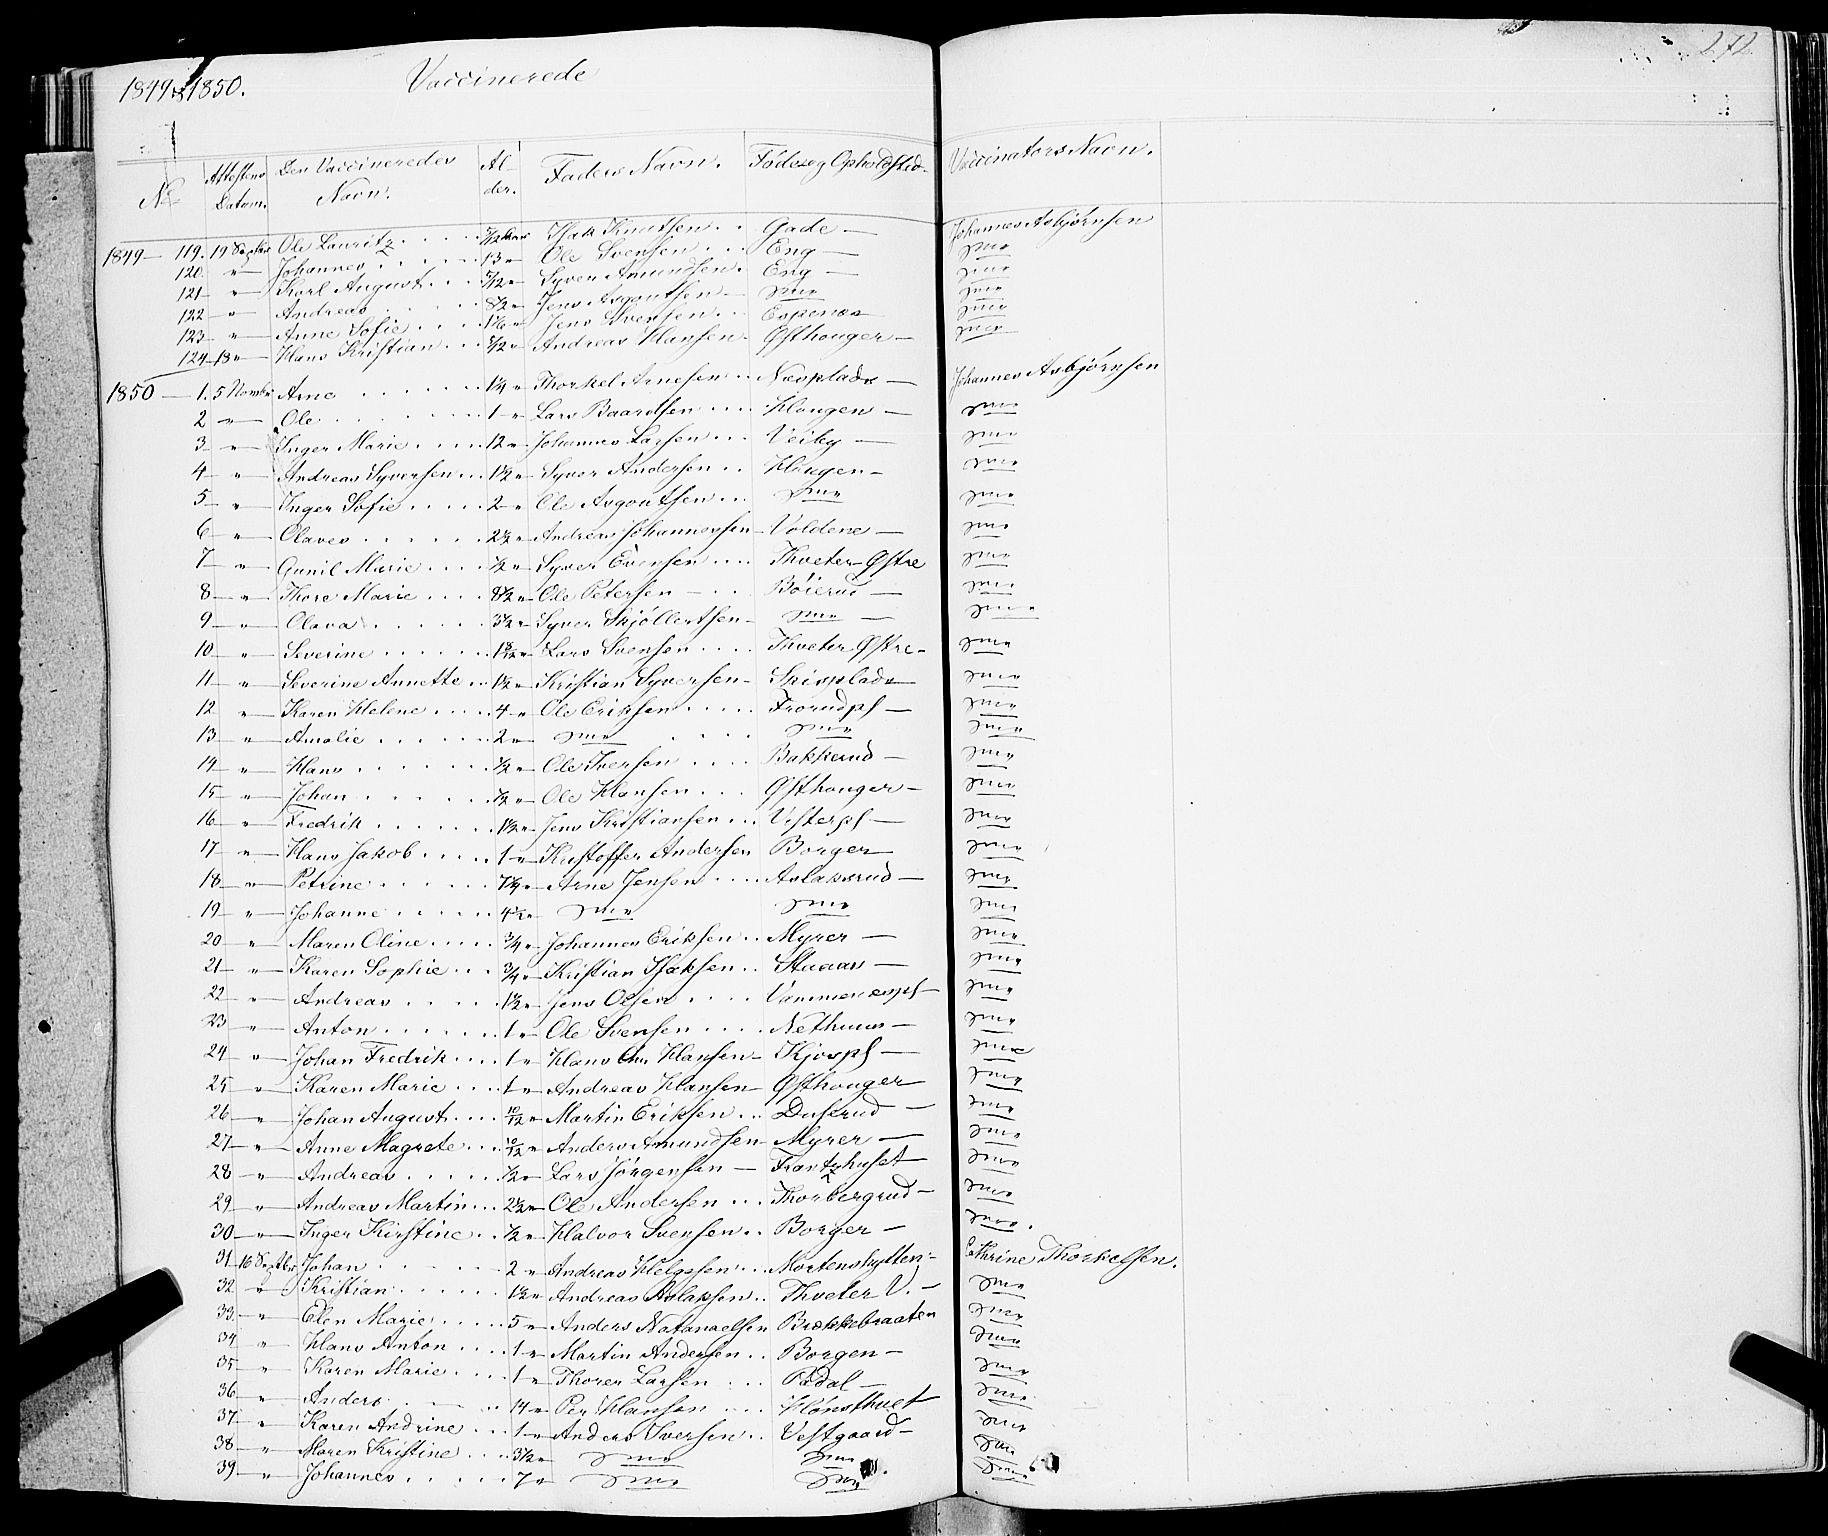 1849 & 1850. Vaccinerede 272
No Attestens Datum. Den Vaccineredes Navn. Alder. Faders Navn. Føde og Opholdsted. Vaccinators Navn.
1849 — 119. 19 Septbr Ole Lauritz Isak Knudsen Gade — Johannes Asbjørnsen
120. " Johannes 13 " Ole Svensen Eng — dmo
121 " Karl August 5/12 " Syver Amundsen Eng — dmo
122 " Andreas 8½ " Jens Asgoutsen dmo dmo
123 " Anne Sofie Jens Svensen Espenes dmo
124 — 18 " Hans Kristian Andreas Hansen Østhouger — dmo
1850 — 1. 5 Novmbr Arne 1¼ " Thorkel Arnesen Nesplads — Johannes Asbjørnsen
2 " Ole 1 " Lars Baardsen Hougen — dmo
3 " Inger Marie 12 " Johannes Larsen Veiby — dmo
4 " Andreas Syversen 1½ " Syver Andersen Hougen — dmo
5 " Inger Sofie 2 " Ole Asgoutsen dmo dmo
6 " Olaves 2½ " Andreas Johannessen Voldene — dmo
7 " Gunil Marie ½ " Syver Evensen Thveter Østre dmo
8 " Thore Marie 8½ " Ole Petersen Böierud — dmo
9 " Olava 3½ " Syver Skjöllertsen dmo — dmo
10 " Severine Lars Svensen Thveter Østre — dmo
11 " Severine Annette 1½ " Kristian Syversen Snisplads dmo
12 " Karen Helene 4 " Ole Eriksen Frorudpl — dmo
13 " Amalie 2 " dmo dmo dmo
14 " Hans ½ " Ole Iversen Bakkerud — dmo
15 " Johan ½ " Ole Hansen Østhouger — dmo
16 " Fredrik 1½ " Jens Kristiansen Vesterpl — dmo
17 " Hans Jakob 1 " Kristoffer Andersen Borger dmo
18 " Petrine Arne Jensen Aslaksrud — dmo
19 " Johanne 4½ " dmo dmo dmo
20 " Maren Oline ¾ " Johannes Eriksen Myrer — dmo
21 " Karen Sophie ¾ " Kristian Isaksen Stuaas — dmo
22 " Andreas 1½ " Jens Olsen dmo
23 " Anton 1 " Ole Svensen Nethuus — dmo
24 " Johan Fredrik 1 " Hans Chr Hansen Kjospl — dmo
25 " Karen Marie 1 " Andreas Hansen Østhouger dmo
26 " Johan August 10/12 " Martin Eriksen Duserud — dmo
27 " Anne Magrete 10/12 " Anders Amundsen Myrer — dmo
28 " Andreas ½ " Lars Jörgensen Frantzhuset dmo
29 " Andreas Martin 2½ " Ole Andersen Thorbergrud — dmo
30 " Inger Kirstine ½ " Halvor Svensen Borger — dmo.
31 16 Septbr Johan 2 " Andreas Helgesen Mortenshytten Cathrine Thorkelsen.
32 " Kristian 1½ " Andreas Aslaksen Thveter V. — dmo
33 " Elen Marie 5 " Anders Natanaelsen Brekkebraaten dmo
34 " Hans Anton 1 " Martin Andersen Borgen — dmo
35 " Karen Marie 1 " Thorer Larsen Padal — dmo
36 " Anders 14 " Per Hansen Hönsthvet dmo
37 " Karen Andrine 1 " Anders Iversen Vestgaard — dmo
38 " Maren Kristine 3½ " dmo dmo dmo
39 " Johannes 7 " dmo dmo dmo